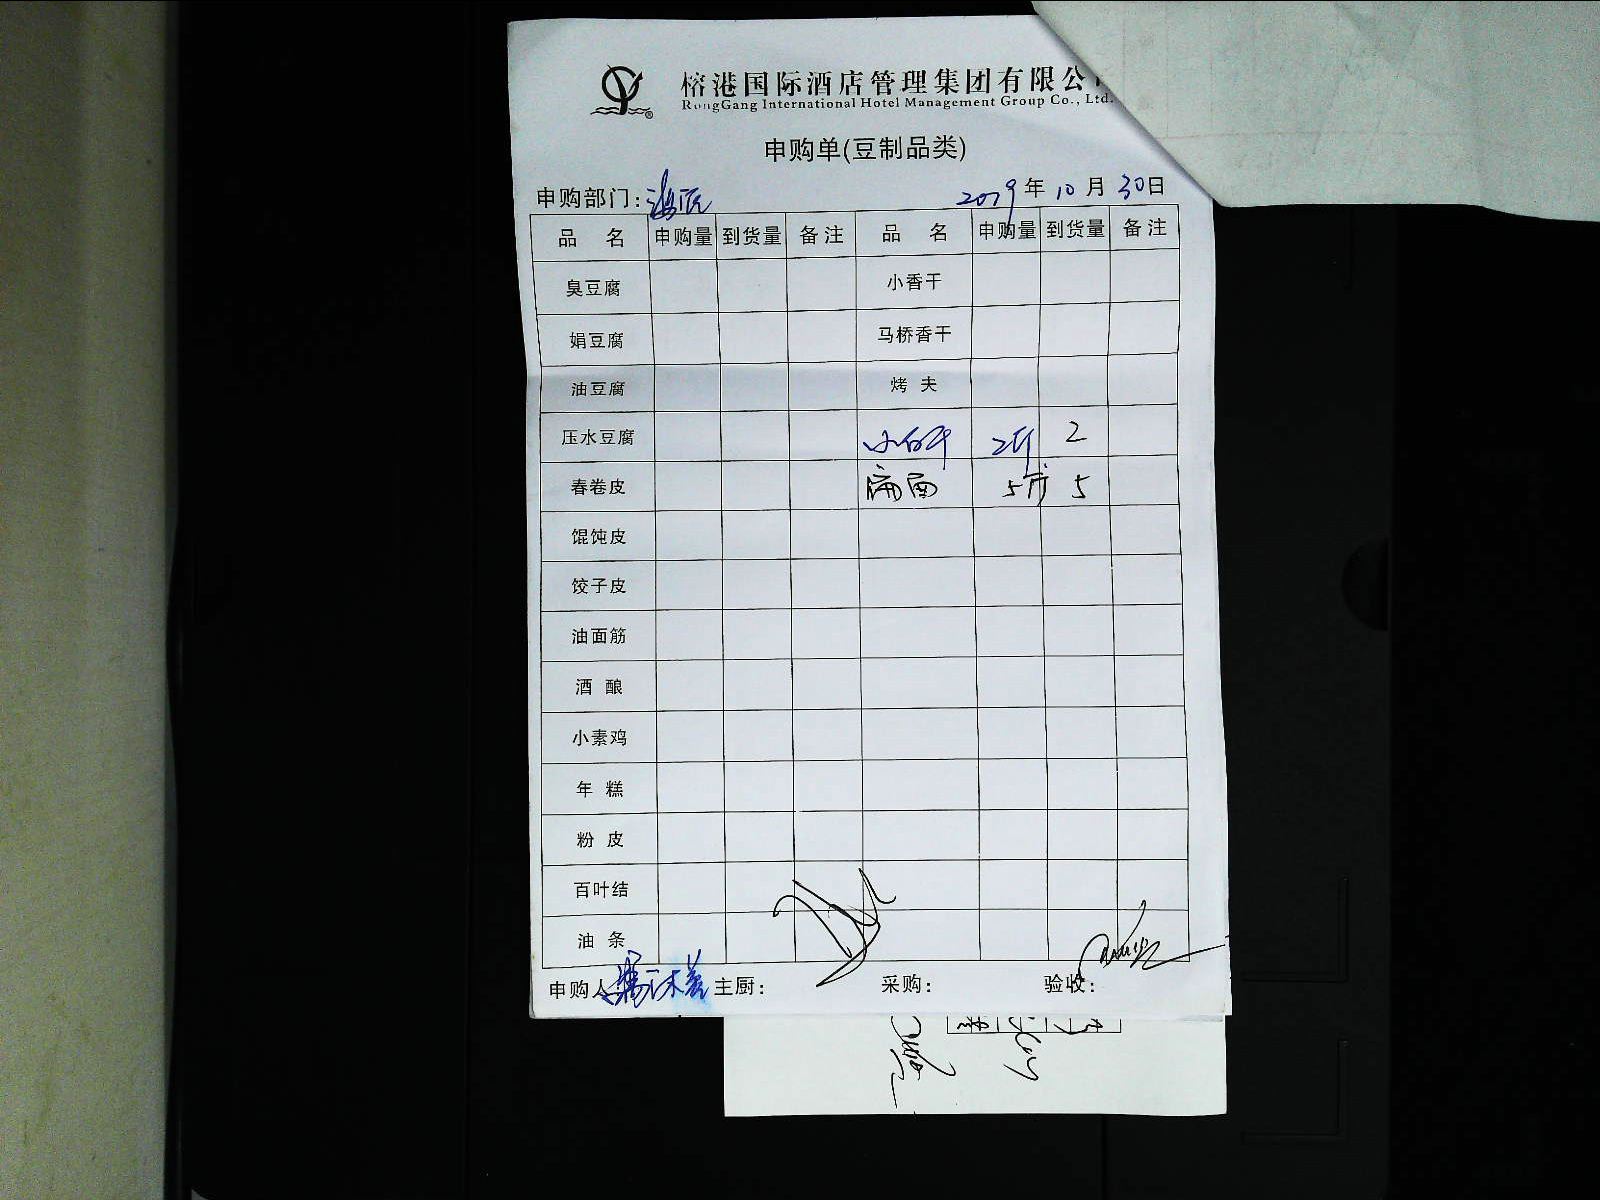 榕港国际酒店管理集团有限公
RongGang International Hotel Management Group Co., Ltd.
申购单(豆制品类)
申购部门: 2019年10月30日
品 名 申购量 到货量 备注 品 名 申购量 到货量 备注
臭豆腐 小香干
娟豆腐 马桥香干
油豆腐 烤 夫
压水豆腐 小白干 2斤 2
春卷皮 扁面 5斤 5
馄饨皮
饺子皮
油面筋
酒 酿
小素鸡
年 糕
粉 皮
百叶结
油 条
申购人 主厨: 采购: 验收: